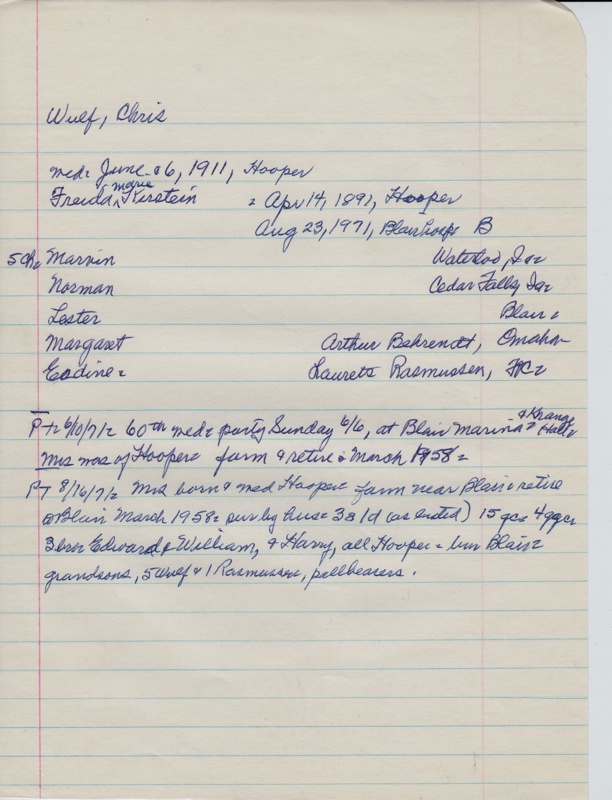 Wulf, Chris
med= June 6, 1911, Hooper
Freida Marie Kerstein = Apr 14, 1891, Hooper
Aug 23, 1971, Blair hosp= B
5 Ch= Marvin Waterloo, Ia=
Norman Cedar Falls, Ia=
Lester Blair=
Margaret Arthur Behrendt, Omaha
Eadine= Laurets Rasmussen,
P-T= 6/10/71= 60th med= party Sunday 6/6, at Blair Marina & Hall=
Mrs was of Hooper= farm & retire = March 1958=
P-T 8/16/71= Mrs born & med Hooper= farm near Blair & retire
@ Blair March 1958= sur by hus= 3s 1d (as listed) 15 gc= 4 ggc=
3 bro= Edward & William, & Harry, all Hooper= bur Blair=
grandsons, 5 Wulf & 1 Rasmussen, pallbearers.